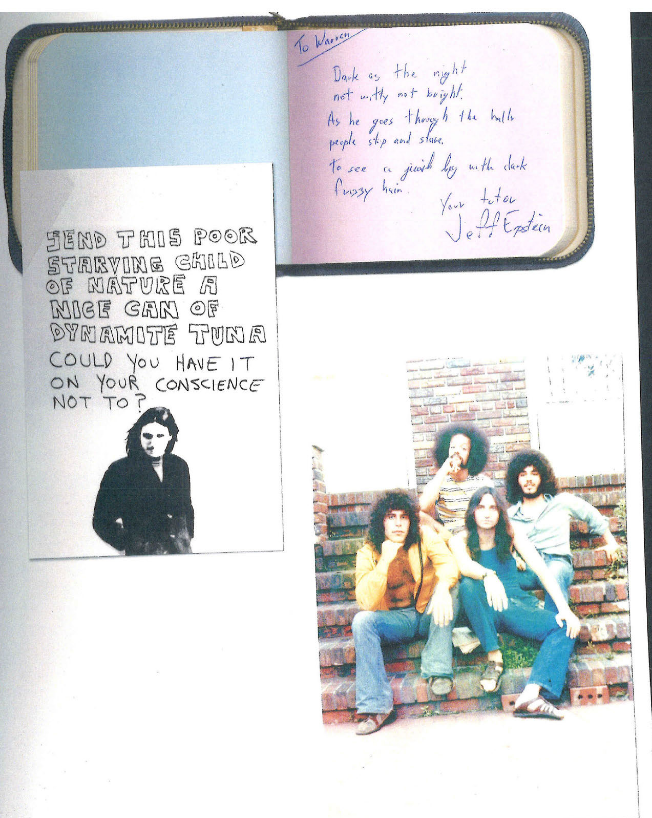 To Warren
Dark as the night
not witty not bright.
As he goes through the halls
people stop and stare.
To see a jewish boy with dark
frizzy hair.
Your tutor
Jeff Epstein
SEND THIS POOR
STARVING CHILD
OF NATURE A
NICE CAN OF
DYNAMITE TUNA
COULD YOU HAVE IT
ON YOUR CONSCIENCE
NOT TO?